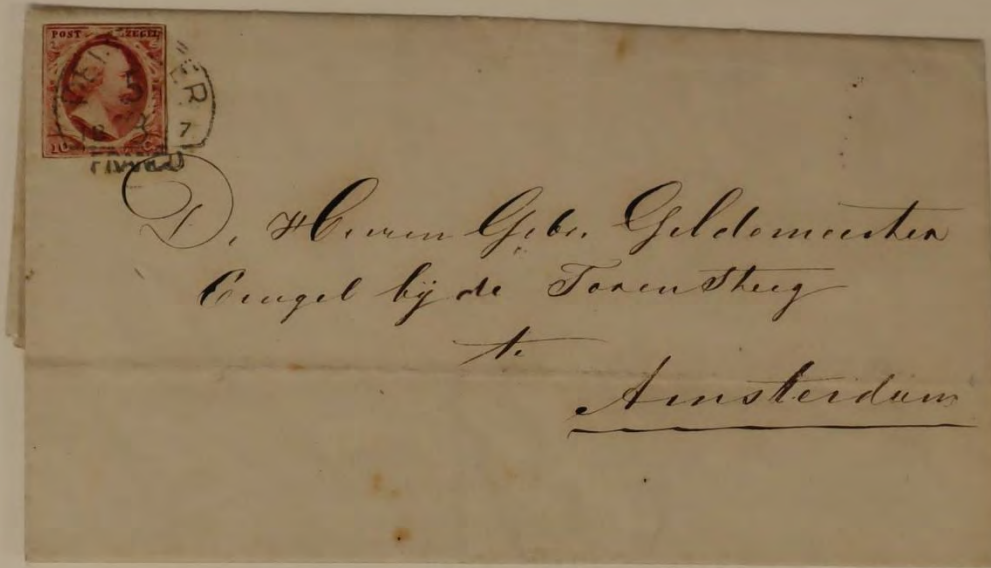 POST ZEGEL
10 C
FRANCO
D. Heeren Gebr. Geldemeester
Cingel bij de Toren Steeg
te
Amsterdam